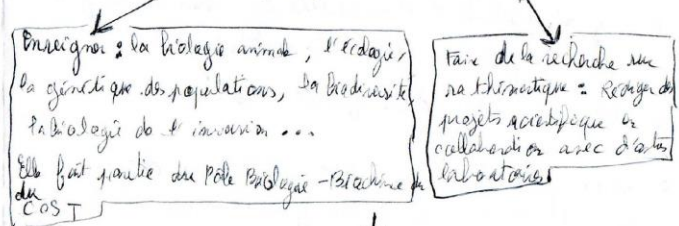 Enseigner : la biologie animale, l'écologie,
la génétique des populations, la biodiversité,
la biologie de l'invasion ...
Elle fait partie du Pôle Biologie - Biochimie
du COST
Faire de la recherche sur
sa thématique : Rédiger des
projets scientifique en
collaboration avec d'autres
laboratoires